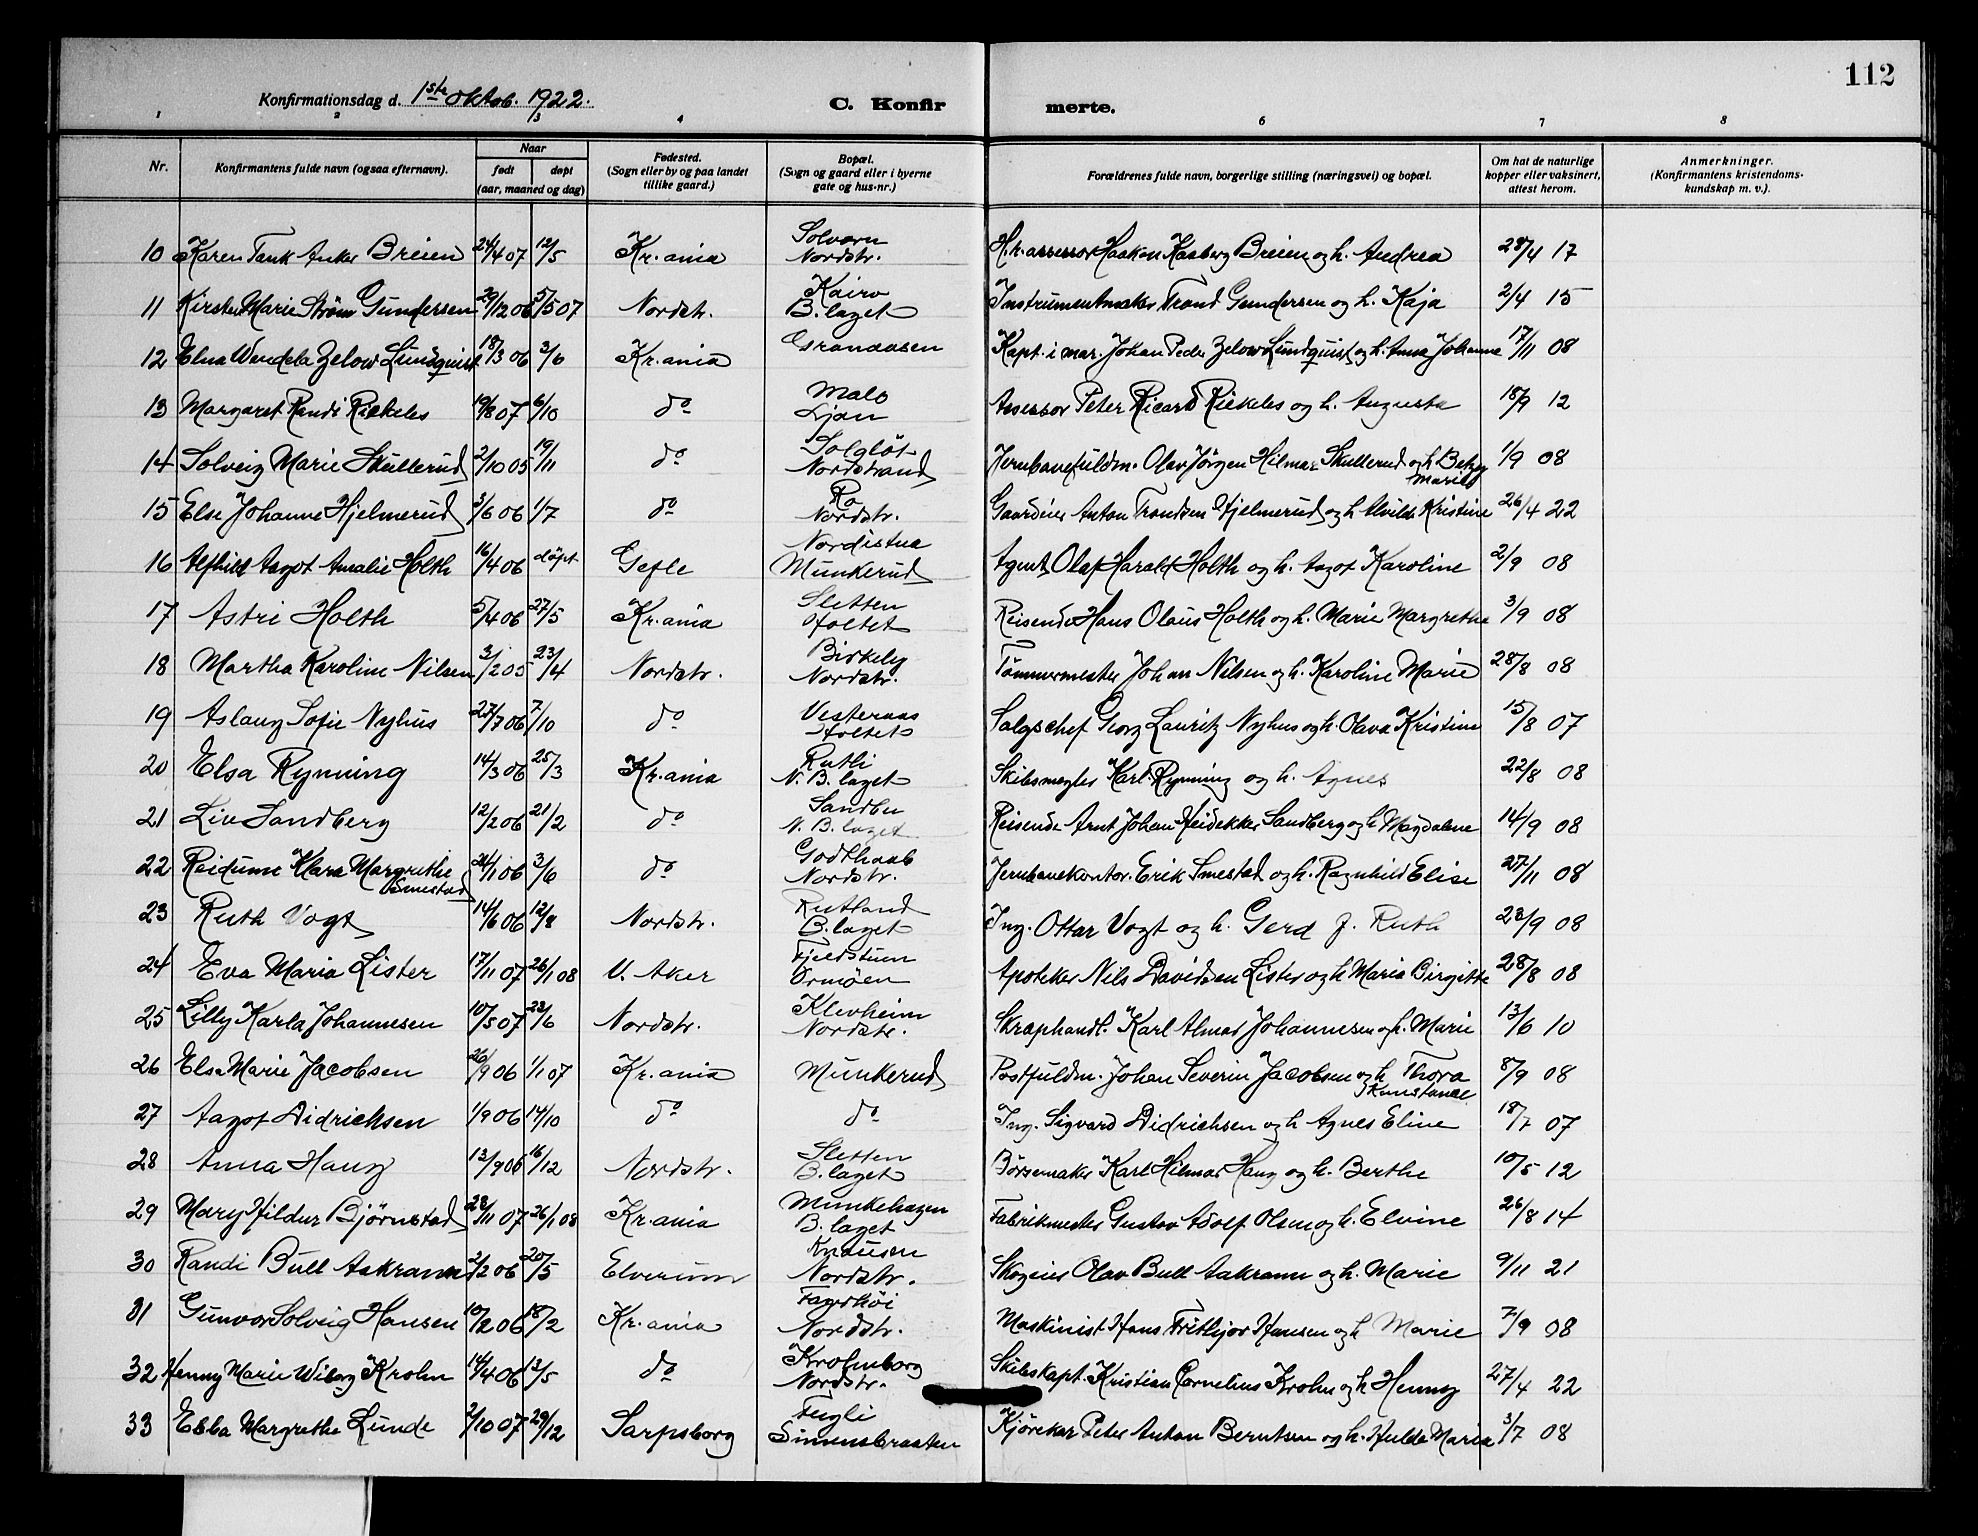 112
Konfirmationsdag d. 1ste oktob. 1922.
C. Konfir merte.
1 2 3 4 6 7 8
Nr. Konfirmantens fulde navn (ogsaa efternavn). Naar født døpt (aar, maaned og dag) Fødested. (Sogn eller by og paa landet tillike gaard.) Bopæl. (Sogn og gaard eller i byerne gate og hus-nr.) Forældrenes fulde navn, borgerlige stilling (næringsvei) og bopæl. Om hat de naturlige kopper eller vaksinert, attest herom. Anmerkninger. (Konfirmantens kristendoms-kundskap m. v.).
10 Karen Tank Anker Breien 24/4 07 12/5 Kr.ania Solvorn Nordstr. H.r.assessor Haakon Hasberg Breien og h. Andrea 28/4 17
11 Kirsten Marie Strøm Gundersen 29/12 06 5/5 07 Nordstr. Kairo B.laget Instrumentmaker Trond Gundersen og h. Kaja 2/4 15
12 Elna Wendela Zelow Lundquist 18/3 06 3/6 Kr.ania Granaasen Kapt. i mar. Johan Peder Zelow Lundquist og h. Anna Johanne 17/11 08
13 Margaret Randi Rieckeles 19/8 07 6/10 do Malo Ljan Assessor Peter Ricard Riekeles og h. Augusta 18/9 12
14 Solveig Marie Skullerud 2/10 05 19/11 do Solgløt Nordstrand Jernbanefuldm. Olav Jörgen Hilmar Skullerud og h Betzy Marie 1/9 08
15 Else Johanne Hjelmerud 3/6 06 1/7 do Ro Nordstr. Gaardeier Anton Trondsen Hjelmerud og h Alvilde Kristine 26/4 22
16 Alfhild Aagot Amalie Holth 16/4 06 döpt Gefle Nordistua Munkerud Agent Olaf Harald Holth og h. Aagot Karoline 2/9 08
17 Astri Holth 5/4 06 27/5 Kr.ania Sletten Holtet Reisende Hans Olaus Holth og h. Marie Margrethe 3/9 08
18 Martha Karoline Nilsen 3/2 05 23/4 Nordstr. Birkely Nordstr. Tömmermester Johan Nilsen og h. Karoline Marie 28/8 08
19 Aslaug Sofie Nyhus 27/7 06 7/10 do Vesteraas Holtet Salgschef Georg Lauritz Nyhus og h. Olava Kristine 15/8 07
20 Elsa Rynning 14/3 06 25/3 Kr.ania Rutli N. B. laget Skibsmegler Karl Rynning og h. Agnes 22/8 08
21 Liv Sandberg 12/2 06 21/2 do Sandbu N. B. laget Reisende Arnt Johan Heidekker Sandberg og h Magdalene 14/9 08
22 Reidunn Klara Margrethe Smestad 24/1 06 3/6 do Godthaab Nordstr. Jernbanekontor. Erik Smestad og h. Ragnhild Elise 27/11 08
23 Ruth Vogt 14/6 06 12/8 Nordstr. Rutland B.laget Ing. Ottar Vogt og h. Gerd f. Ruth 23/9 08
24 Eva Maria Lister 17/11 07 26/1 08 V. Aker Fjeldstuen Ormöen Apoteker Nils Davidsen Lister og h Maria Birgitte 28/8 08
25 Lilly Karla Johannesen 10/5 07 23/6 Nordstr. Klevheim Nordstr. Skraphandl. Karl Almar Johannesen og h. Marie 13/6 10
26 Elsa Marie Jacobsen 26/9 06 1/1 07 Kr.ania Munkerud Postfuldm. Johan Severin Jacobsen og h Thora Konstanse 8/9 08
27 Aagot Didrichsen 1/9 06 14/10 do do Ing. Sigvard Didrichsen og h Agnes Eline 18/7 07
28 Anna Haug 13/9 06 16/12 Nordstr. Sletten B.laget Börsemaker Karl Hilmar Haug og h. Berthe 10/5 12
29 Mary Hildur Bjørnstad 28/11 07 26/1 08 Kr.ania Munkehagen B.laget Fabrikmester Gustav Adolf Olsen og h. Elvine 26/8 14
30 Randi Bull Aakrann 2/2 06 20/5 Elverum Knausen Nordstr. Skogeier Olav Bull Aakrann og h. Marie 9/11 21
31 Gunvor Solveig Hansen 10/2 06 18/2 Kr.ania Nordstr. Maskinist Hans Fritjov Hansen og h Marie 7/9 08
32 Henny Marie Wiborg Krohn 14/4 06 13/5 do Krohnborg Nordstr. Skibskapt. Kristian Cornelius Krohn og h Henny 27/4 22
33 Ebba Margrethe Lunde 2/10 07 29/12 Sarpsborg Fugli Simensbraaten Kjörekar Peter Anton Berntsen og h. Hulda Maria 3/7 08